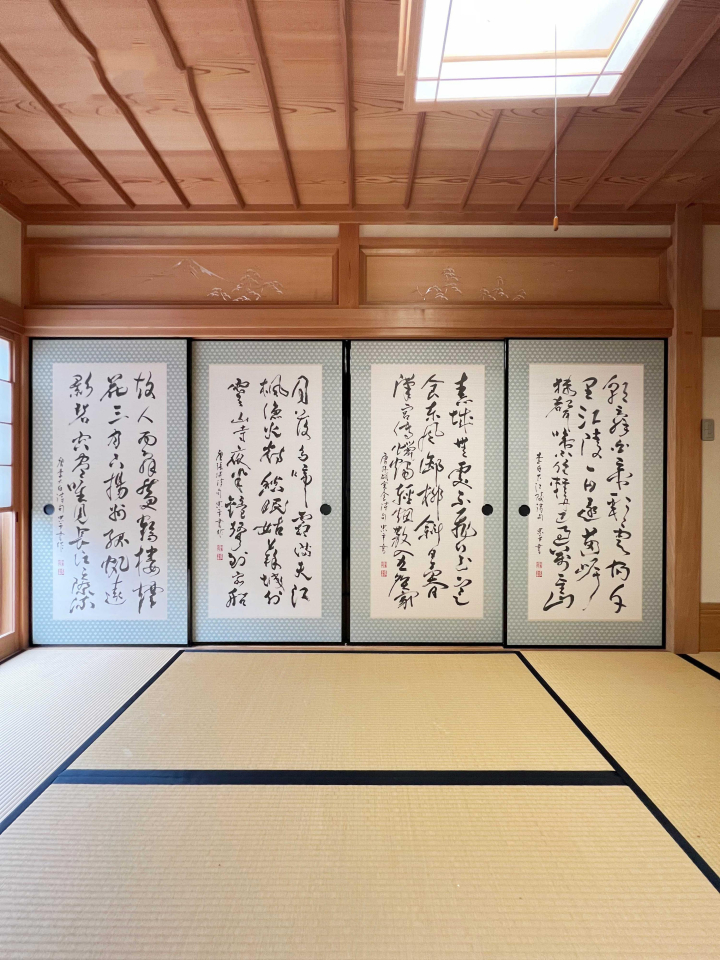 朝辭白帝彩雲間千
里江陵一日還兩岸
猿聲啼不住輕舟已過萬重山
春城無處不飛花寒
食東風御柳斜日暮
漢宮傳蠟燭輕烟散入五侯家
月落烏啼霜滿天江
楓漁火對愁眠姑蘇城外
寒山寺夜半鐘聲到客船
唐張継詩句
故人西辭黃鶴樓煙
花三月下揚州孤帆遠
影碧空盡唯見長江天際流
唐李太白詩句